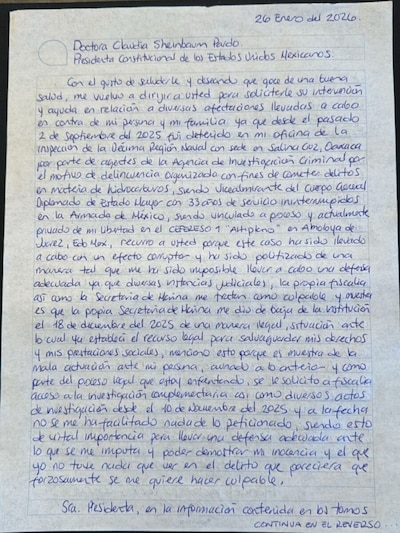 26 Enero del 2026.
Doctora Claudia Sheinbaum Pardo.
Presidenta Constitucional de los Estados Unidos Mexicanos.
Con el gusto de saludarle y deseando que goce de una buena
salud, me vuelvo a dirigir a usted para solicitarle su intervención
y ayuda en relación a diversas afectaciones llevadas a cabo
en contra de mi persona y mi familia ya que desde el pasado
2 de Septiembre del 2025 fui detenido en mi oficina de la
inspección de la Décima Región Naval con sede en Salina Cruz, Oaxaca
por parte de agentes de la Agencia de Investigación Criminal por
el motivo de delincuencia organizada con fines de cometer delitos
en materia de hidrocarburos, siendo Vicealmirante del Cuerpo General
Diplomado de Estado Mayor con 33 años de servicio ininterrumpidos
en la Armada de México, siendo vinculado a proceso y actualmente
privado de mi libertad en el CEFERESO 1 "Altiplano" en Almoloya de
Juárez, Edo Mex, recurro a usted porque este caso ha sido llevado
a cabo con un efecto corruptor y ha sido politizado de una
manera tal que me ha sido imposible llevar a cabo una defensa
adecuada ya que diversas instancias judiciales, la propia fiscalía
así como la Secretaría de Marina me tratan como culpable y muestra
es que la propia Secretaría de Marina me dio de baja de la institución
el 18 de diciembre del 2025 de una manera ilegal, situación ante
lo cual ya establecí el recurso legal para salvaguardar mis derechos
y mis prestaciones sociales, menciono esto porque es muestra de la
mala actuación ante mi persona, aunado a lo anterior y como
parte del proceso legal que estoy enfrentando, se le solicitó a fiscalía
acceso a la investigación complementaria así como diversos actos
de investigación desde el 10 de Noviembre del 2025 y a la fecha
no se me ha facilitado nada de lo peticionado, siendo esto
de vital importancia para llevar una defensa adecuada ante
lo que se me imputa y poder demostrar mi inocencia y el que
yo no tuve nada que ver en el delito que pareciera que
forzosamente se me quiere hacer culpable.
Sra. Presidenta, en la información contenida en los tomos
CONTINUA EN EL REVERSO...